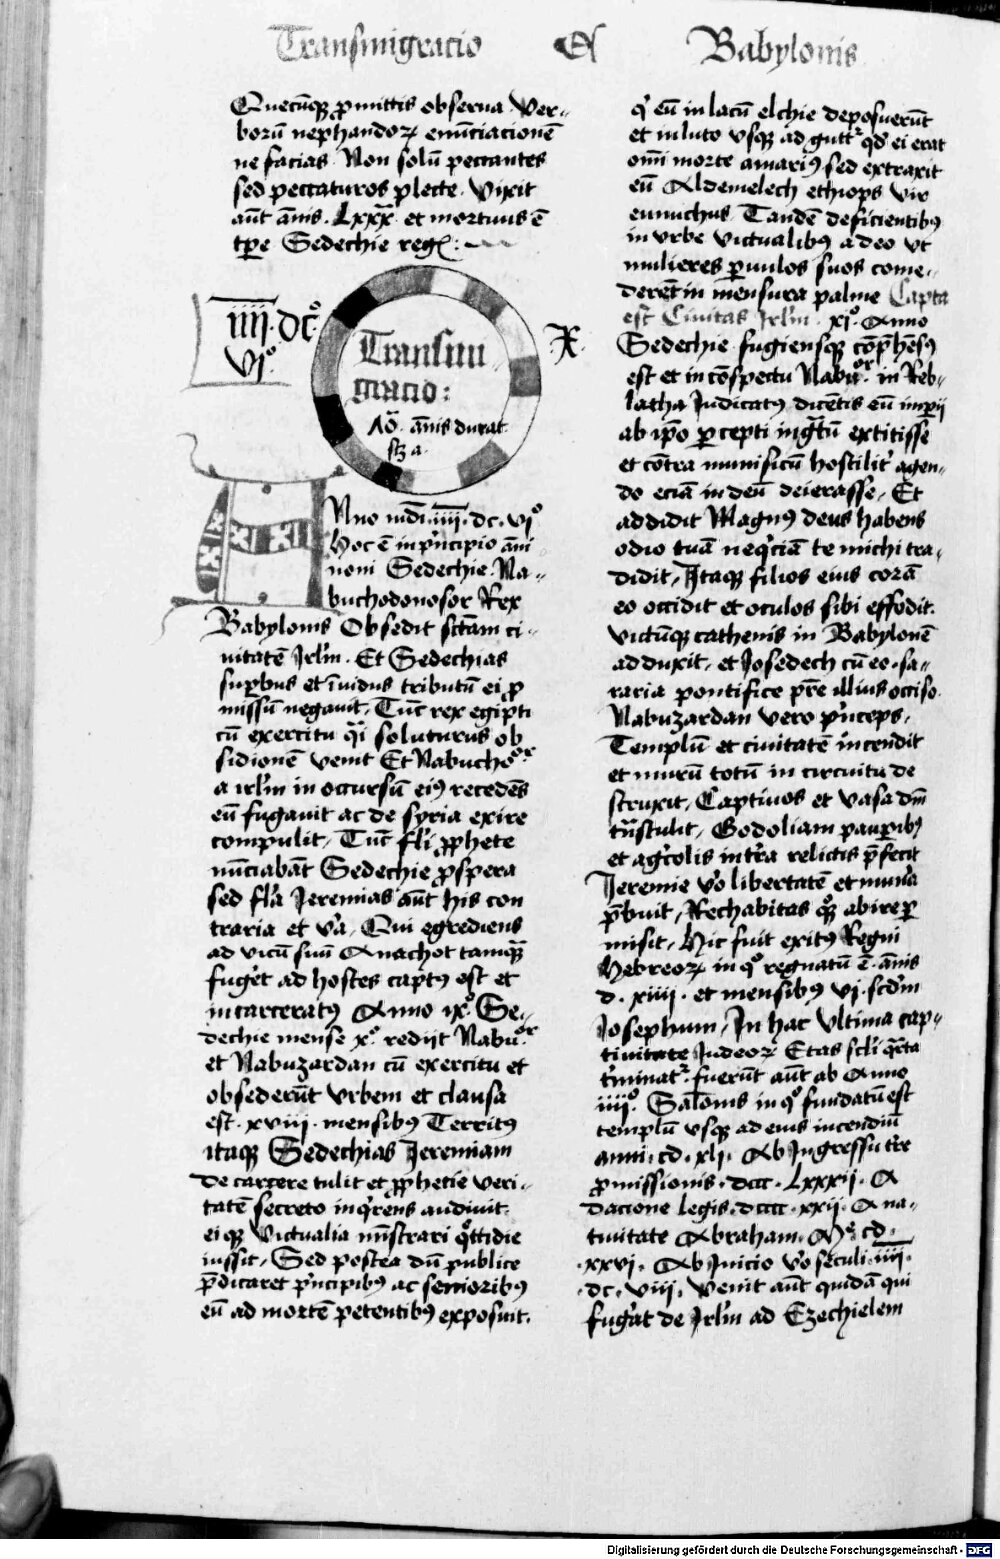 Transmigracio Et Babylonis
Quecūqꝫ ꝓmittis obserua Ver-
borū nephandoꝝ enūciacionē
ne facias Non solū peccantes
sed peccaturos plecte. Vixit
aūt ānis. Lxxx. et mortuus ē
tꝑe Sedechie reg
iiii. dc.
vi°
Transmi
gracio:
ānis durat
R.
IX X XI XII
Anno mdi. iiii. dc. vi°
Hoc ē in pͥncipio āni
noni Sedechie. Na-
buchodonosor Rex
Babylonis Obsedit sctam ci-
uitatē Jrlm. Et Sedechias
suꝑbus et īuidus tributū ei ꝓ
missū negauit. Tūc rex egipti
cū exercitu qͣi soluturus ob
sidionē venit Et Nabuchoᵒʳ
a irlm in occursū eiꝰ recedēs
eū fugauit ac de syria exire
compulit. Tūc fli ꝓphete
nūciabāt Sedechie ꝓspera
sed fla Jeremias aūt his con
traria et va. Qui egrediens
ad vicū suū Anachot tamqͣ
fuget ad hostes captꝰ est et
incarceratꝰ Anno ix° Se-
dechie mense x° redijt Nabuᵒʳ
et Nabuzardan cū exercitu et
obsederūt vrbem et clausa
est. xviii. mensibꝰ Territꝰ
itaqꝫ Sedechias Jeremiam
de carcere tulit et ꝓphetie veri-
tatē secreto inqͥrens audiuit.
eiqꝫ Victualia mīstrari qͦttidie
iussit. Sed postea dū publice
p̄dicaret pͥncipibꝰ ac senioribꝰ
eū ad mortē petentibꝰ exposuit.
qͥ eū in lacū elchie deposuerūt
et in luto vsqꝫ ad guttꝛ qd ei erat
omi morte amariꝰ sed extraxit
eū Aldemelech ethiops vir
eunuchus. Tandē deficientibꝰ
in vrbe victualibꝰ adeo vt
mulieres ꝑuulos suos come-
derēt in mensura palme Capta
est Ciuitas Jrlm. xi° Anno
Sedechie fugiensqꝫ cōp̄hēsꝰ
est et in cōspectu Nabuᵒʳ. in Reb-
latha Judicatꝰ dicētis eū imꝑii
ab ipo ꝑcepti ingͣtū extitisse
et cōtra munificū hostilit agen-
do eciā in deū deierasse. Et
addidit Magnꝰ deus habens
odio tuā neqͥciā te michi tra-
didit. Itaqꝫ filios eius corā
eo occidit et oculos sibi effodit.
victūqꝫ cathenis in Babylonē
adduxit. et Josedech cū eo. sa-
raria pontifice pr̄e illius occiso.
Nabuzardan vero pͥnceps.
Templū et ciuitatē incendit
et murū totū in circuitu de
struxit. Captiuos et vasa dm
tͣnstulit. Godoliam pauꝑibꝰ
et agͥcolis in tra relictis p̄fecit
Jeremie vo libertatē et muna
p̄buit. Rechabitas qͦꝫ abire ꝑ
misit. Hic fuit exitꝰ Regni
Hebreoꝝ in qͦ regnatū ē. ānis
d. xiiii. et mensibꝰ vi. scdm
Josephum. In hac vltima cap-
tiuitate Judeoꝝ Etas scli qͣrta
tͥminatꝛ. fuerūt aūt ab Anno
iiii° Salōnis in qͦ fundatū est
templū vsqꝫ ad eius incendiū
anni. cd. xli. Ab Ingressu tre
ꝓmissionis. dccc. Lxxxii. A
dacione legis. dcccc. xxii. A na-
tiuitate Abraham. M° cd.
xxvi. Ab Inicio vo seculi. iiii.
dc. viii. Venit aūt quidā qui
fugat de Jrlm ad Ezechielem
Digitalisierung gefördert durch die Deutsche Forschungsgemeinschaft - DFG